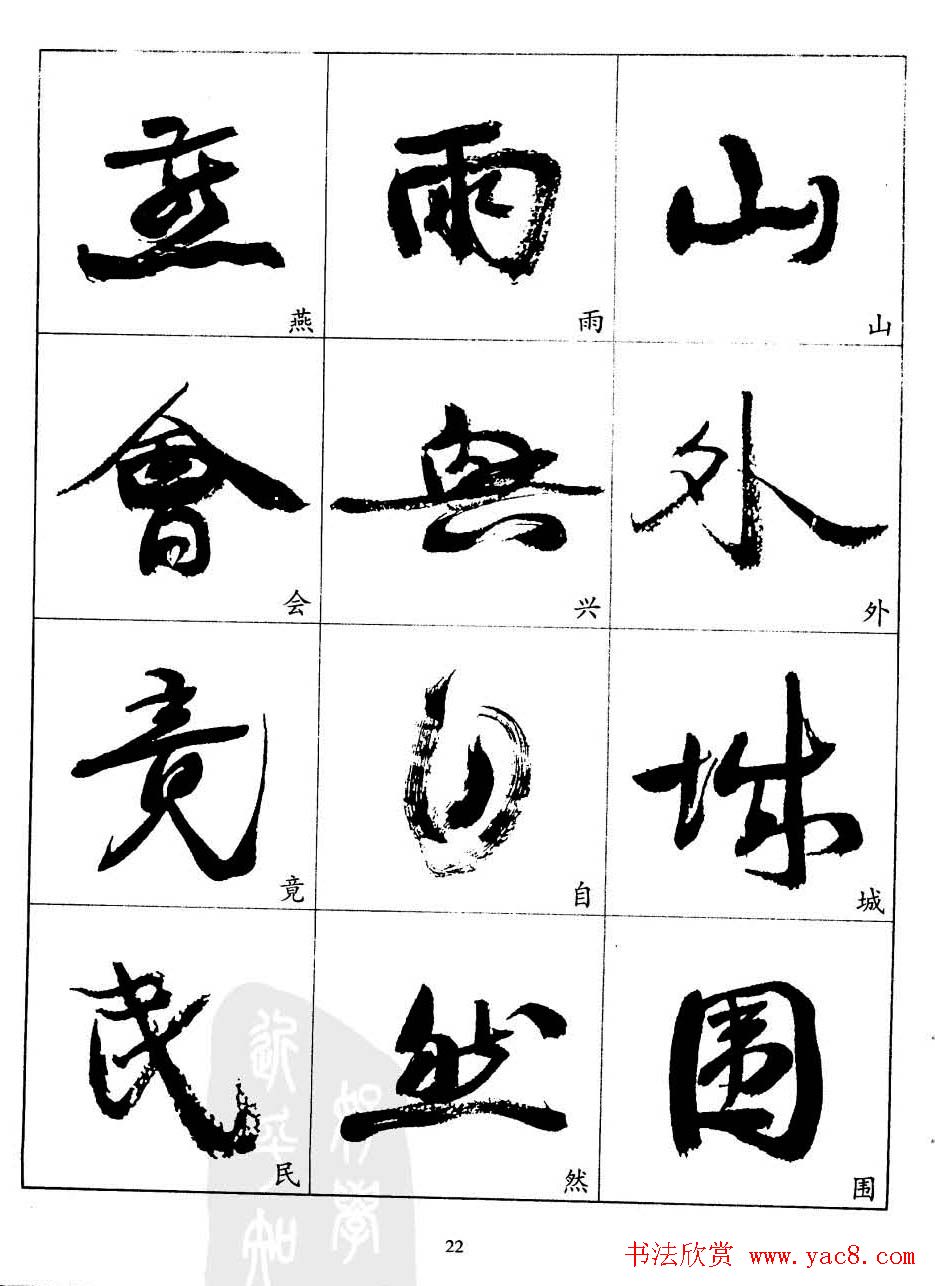 燕 雨 山
燕 雨 山
會 興 外
会 兴 外
竟 自 城
竟 自 城
民 然 圍
民 然 围
好學
近乎知
22
书法欣赏 www.yac8.com